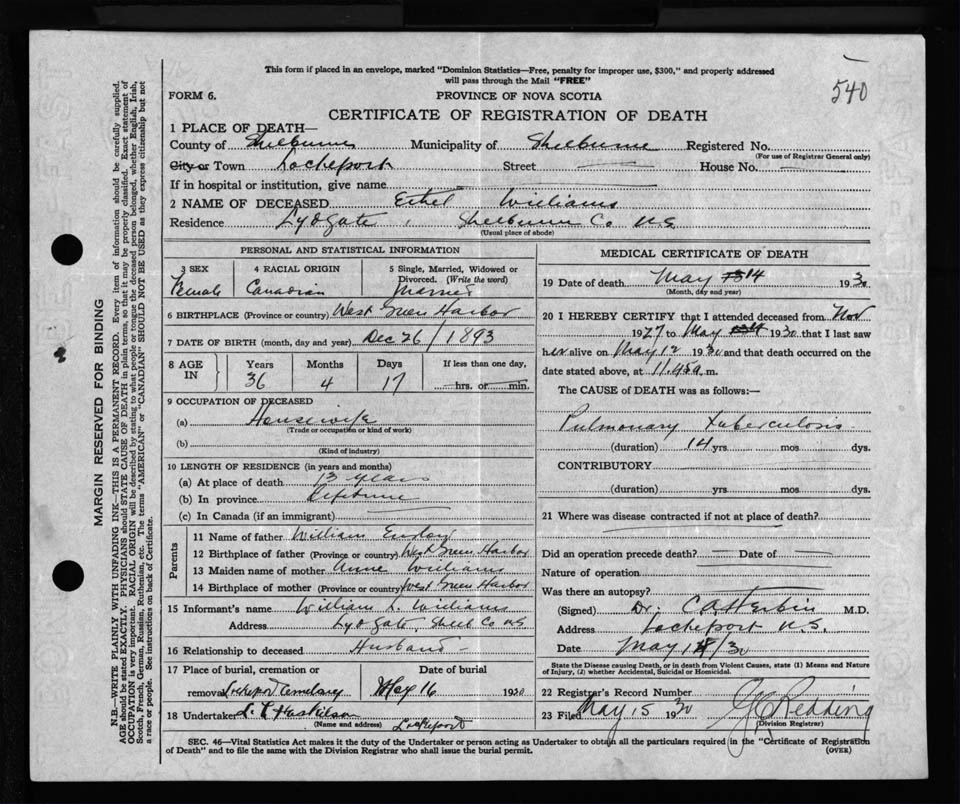 This form if placed in an envelope, marked "Dominion Statistics—Free, penalty for improper use, $300," and properly addressed
will pass through the Mail "FREE"
540
FORM 6.
PROVINCE OF NOVA SCOTIA
CERTIFICATE OF REGISTRATION OF DEATH
1 PLACE OF DEATH—
County of Shelburne Municipality of Shelburne Registered No.
(For use of Registrar General only)
City or Town Lockeport Street House No.
If in hospital or institution, give name
2 NAME OF DECEASED Ethel Williams
Residence Lydgate, Shelburne Co N.S.
(Usual place of abode)
PERSONAL AND STATISTICAL INFORMATION
3 SEX
Female
4 RACIAL ORIGIN
Canadian
5 Single, Married, Widowed or
Divorced. (Write the word)
Married
6 BIRTHPLACE (Province or country) West Green Harbor
7 DATE OF BIRTH (month, day and year) Dec 26/1893
8 AGE
IN
Years
36
Months
4
Days
17
If less than one day,
hrs. or min.
9 OCCUPATION OF DECEASED
(a) Housewife
(Trade or occupation or kind of work)
(b)
(Kind of industry)
10 LENGTH OF RESIDENCE (in years and months)
(a) At place of death 13 years
(b) In province Lifetime
(c) In Canada (if an immigrant)
Parents
11 Name of father William
12 Birthplace of father (Province or country) West Green Harbor
13 Maiden name of mother Anne Williams
14 Birthplace of mother (Province or country) West Green Harbor
15 Informant's name William L. Williams
Address Lydgate, Shelb Co N.S.
16 Relationship to deceased Husband
17 Place of burial, cremation or
removal Lockeport Cemetary
Date of burial
May 16 1930
18 Undertaker
(Name and address) Lockeport
MEDICAL CERTIFICATE OF DEATH
19 Date of death May 14 1930
(Month, day and year)
20 I HEREBY CERTIFY that I attended deceased from Nov
1927 to May 1930 that I last saw
her alive on May 12 1930 and that death occurred on the
date stated above, at 11.45 a. m.
The CAUSE of DEATH was as follows:—
Pulmonary tuberculosis
(duration) 14 yrs mos dys.
CONTRIBUTORY
(duration) yrs mos dys.
21 Where was disease contracted if not at place of death?
Did an operation precede death? Date of
Nature of operation
Was there an autopsy?
(Signed) Dr. M.D.
Address Lockeport N.S.
Date May /30
State the Disease causing Death, or in death from Violent Causes, state (1) Means and Nature
of Injury, (2) whether Accidental, Suicidal or Homicidal.
22 Registrar's Record Number
23 Filed May 15 1930 Redding
(Division Registrar)
SEC. 46—Vital Statistics Act makes it the duty of the Undertaker or person acting as Undertaker to obtain all the particulars required in the "Certificate of Registration
of Death" and to file the same with the Division Registrar who shall issue the burial permit.
(OVER)
MARGIN RESERVED FOR BINDING
N.B.—WRITE PLAINLY WITH UNFADING INK—THIS IS A PERMANENT RECORD. Every item of information should be carefully supplied.
AGE should be stated EXACTLY. PHYSICIANS should STATE CAUSE OF DEATH in plain terms, so that it may be properly classified. Exact statement of
OCCUPATION is very important. RACIAL ORIGIN will be described by stating to what people or tongue the deceased person belonged, whether English, Irish,
Scotch, French, German, Russian, Ruthenian, etc. The terms "AMERICAN" or "CANADIAN" SHOULD NOT BE USED as they express citizenship but not
a race or people. See instructions on back of Certificate.